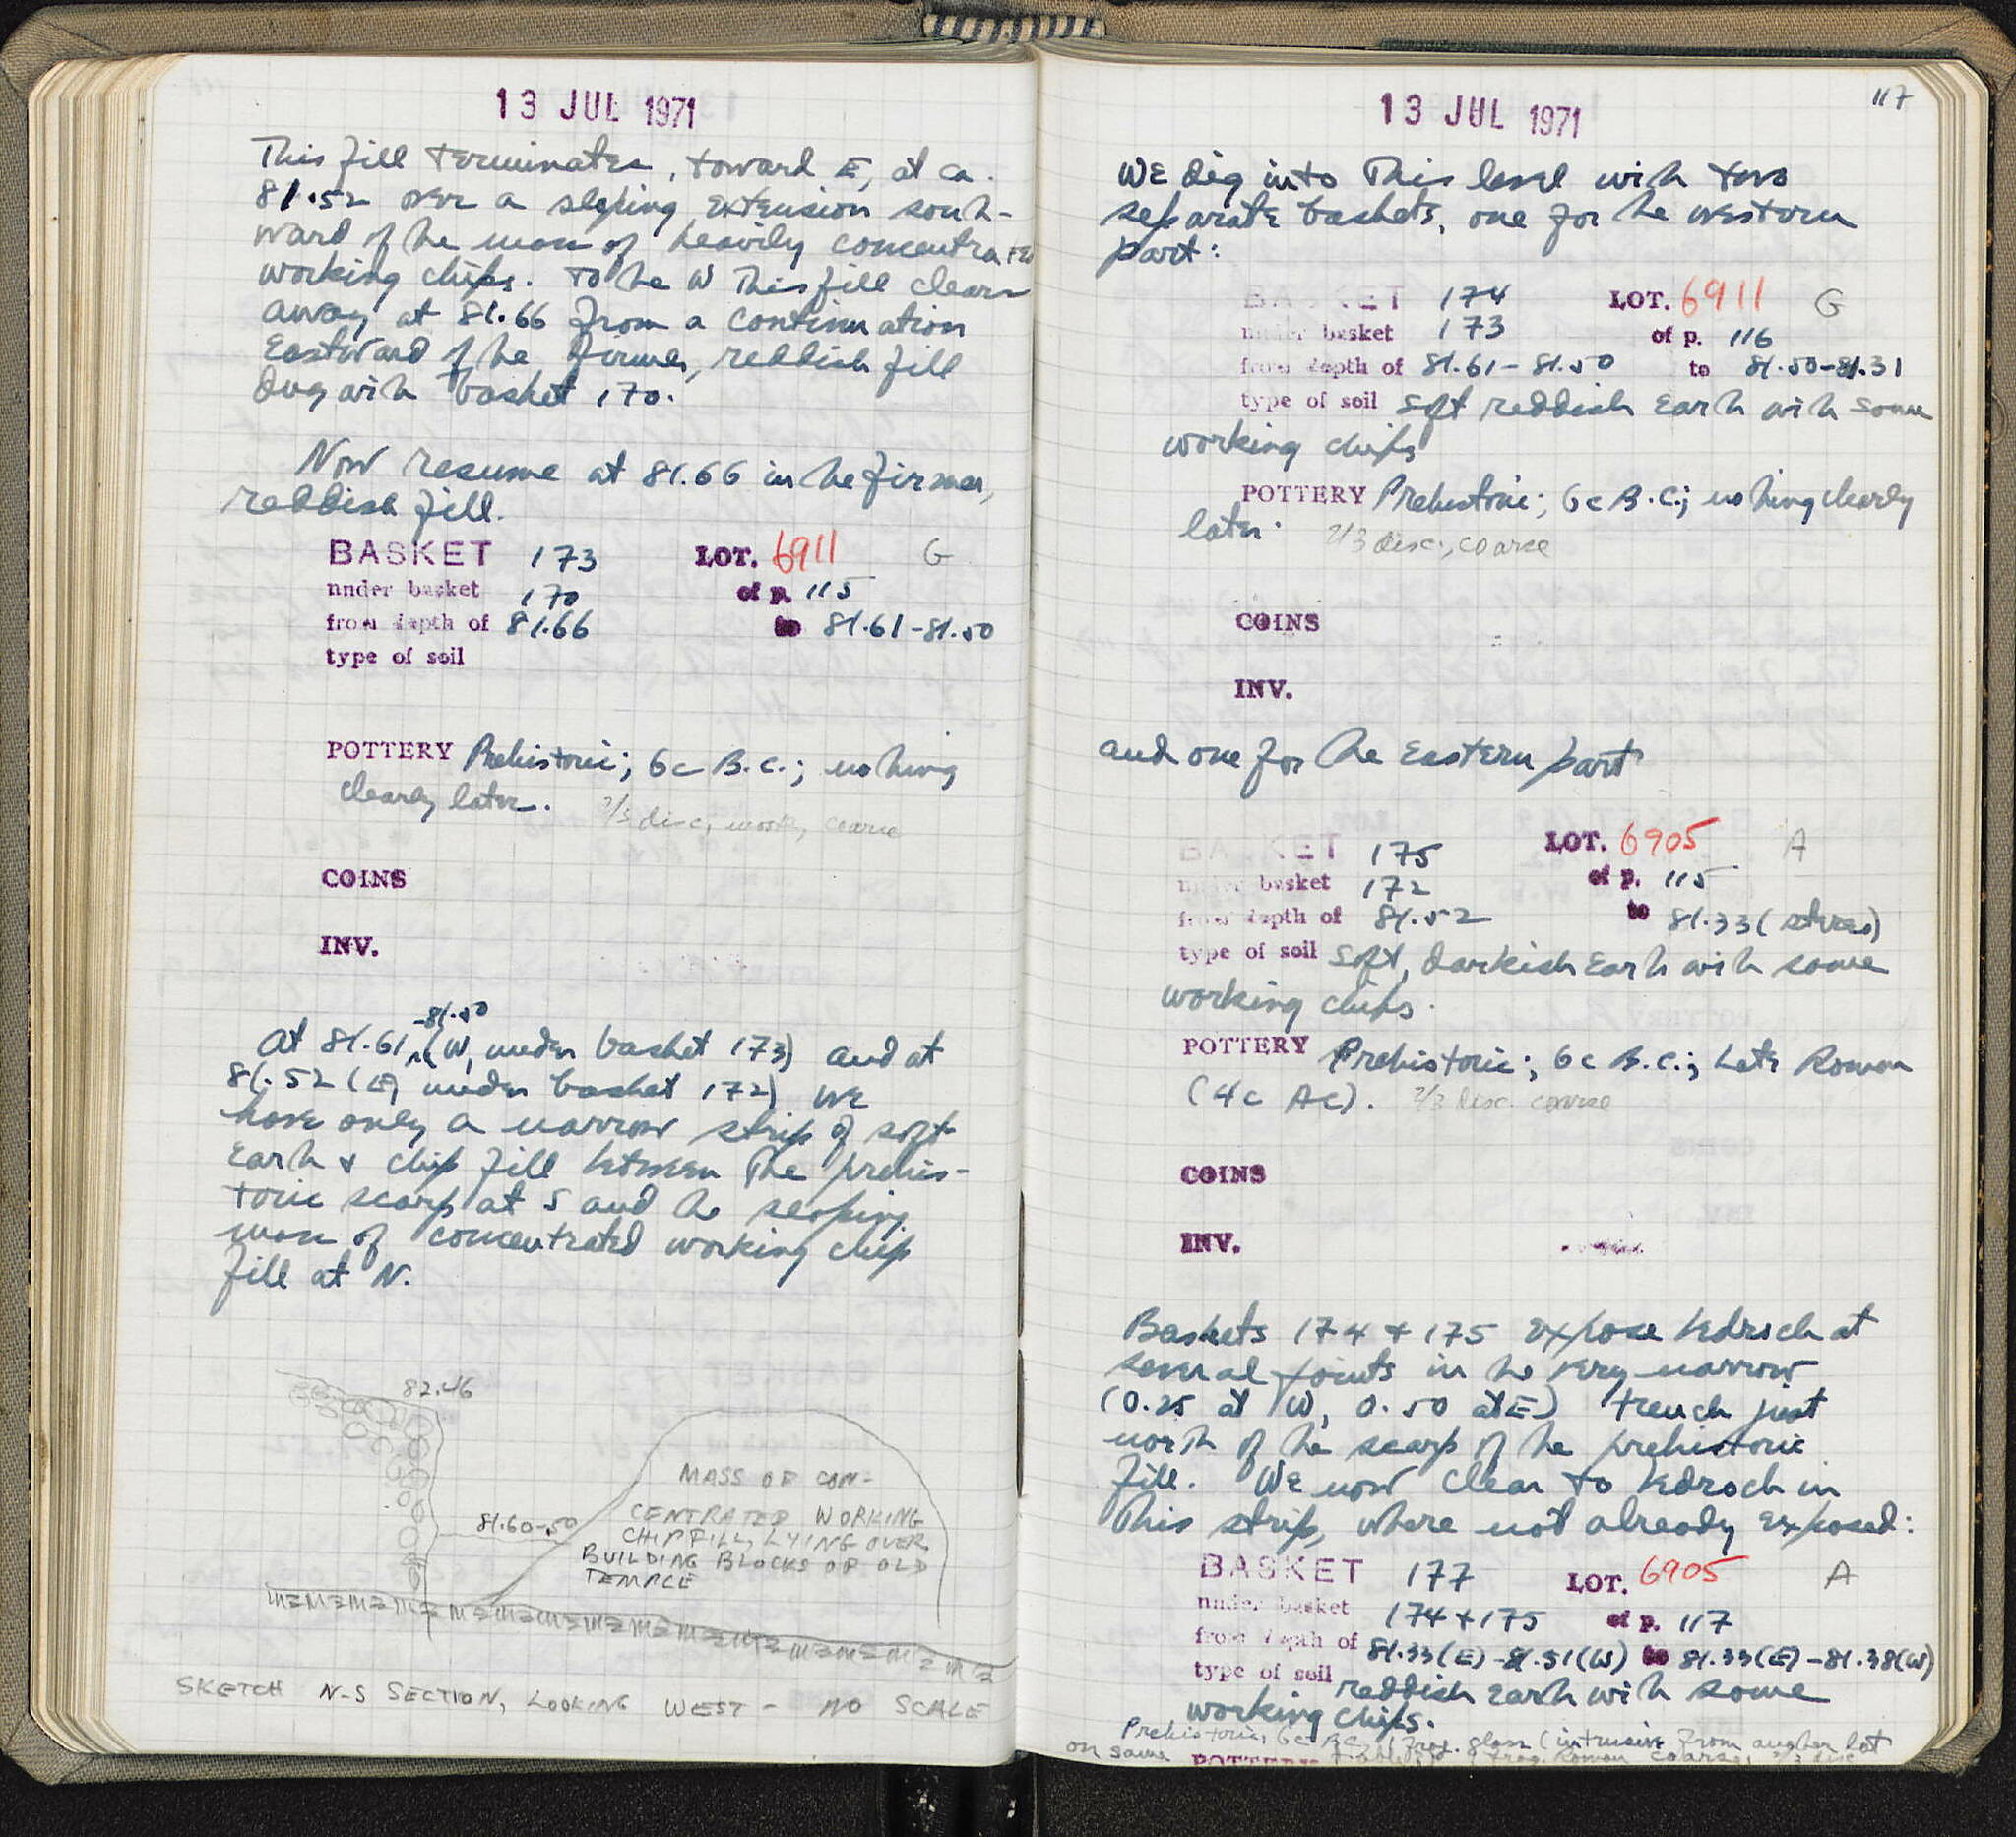 13 JUL 1971
This fill terminates, toward E, at ca.
81.52 over a sloping extension south-
ward of the mass of heavily concentrated
working chips. To the W this fill clears
away at 81.66 from a continuation
Eastward of the firmer, reddish fill
dug with basket 170.
Now resume at 81.66 in the firmer,
reddish fill.
BASKET 173 LOT. 6911 G
under basket 170 of p. 115
from depth of 81.66 to 81.61-81.50
type of soil
POTTERY Prehistoric; 6c B.C.; nothing
clearly later. 2/3 disc, mostly coarse
COINS
INV.
-81.50
At 81.61 (W, under basket 173) and at
81.52 (E, under basket 172) we
have only a narrow strip of soft
Earth & chip fill between the prehis-
toric scarp at S and the sloping
mass of concentrated working chip
fill at N.
82.46
MASS OF CON-
CENTRATED WORKING
81.60-.50
CHIP FILL, LYING OVER
BUILDING BLOCKS OF OLD
TEMPLE
SKETCH N-S SECTION, LOOKING WEST - NO SCALE
117
13 JUL 1971
We dig into this level with two
separate baskets, one for the western
part:
BASKET 174 LOT. 6911 G
under basket 173 of p. 116
from depth of 81.61-81.50 to 81.50-81.31
type of soil soft reddish Earth with some
working chips
POTTERY Prehistoric; 6c B.C.; nothing clearly
later. 2/3 disc., coarse
COINS
INV.
and one for the Eastern part
BASKET 175 LOT. 6905 A
under basket 172 of p. 115
from depth of 81.52 to 81.33 (stereo)
type of soil soft, darkish Earth with some
working chips.
POTTERY Prehistoric; 6c B.C.; Late Roman
(4c AC). 2/3 disc. coarse
COINS
INV.
Baskets 174 & 175 expose bedrock at
several points in the very narrow
(0.25 at W, 0.50 at E) trench just
north of the scarp of the prehistoric
fill. We now clear to bedrock in
this strip, where not already exposed:
BASKET 177 LOT. 6905 A
under basket 174+175 of p. 117
from depth of 81.33(E)-81.31(W) to 81.33(E)-81.38(W)
type of soil reddish Earth with some
working chips.
Prehistoric, 6c BC, 1 frag. glass (intrusive from another lot
on same
POTTERY 1 frag. Roman coarse, 2/3 disc